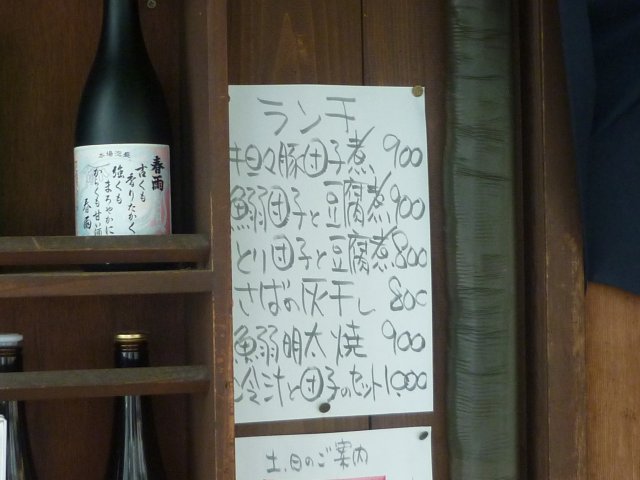 ランチ
坦々豚団子煮 900
鰯団子と豆腐煮 900
とり団子と豆腐煮 800
さばの灰干し 800
鰯明太焼 900
冷汁と団子のセット 1,000
土.日のご案内
本場泡盛
春雨
古くも
香りたかく
強くも
まろやかに
からくも甘い酒
春雨